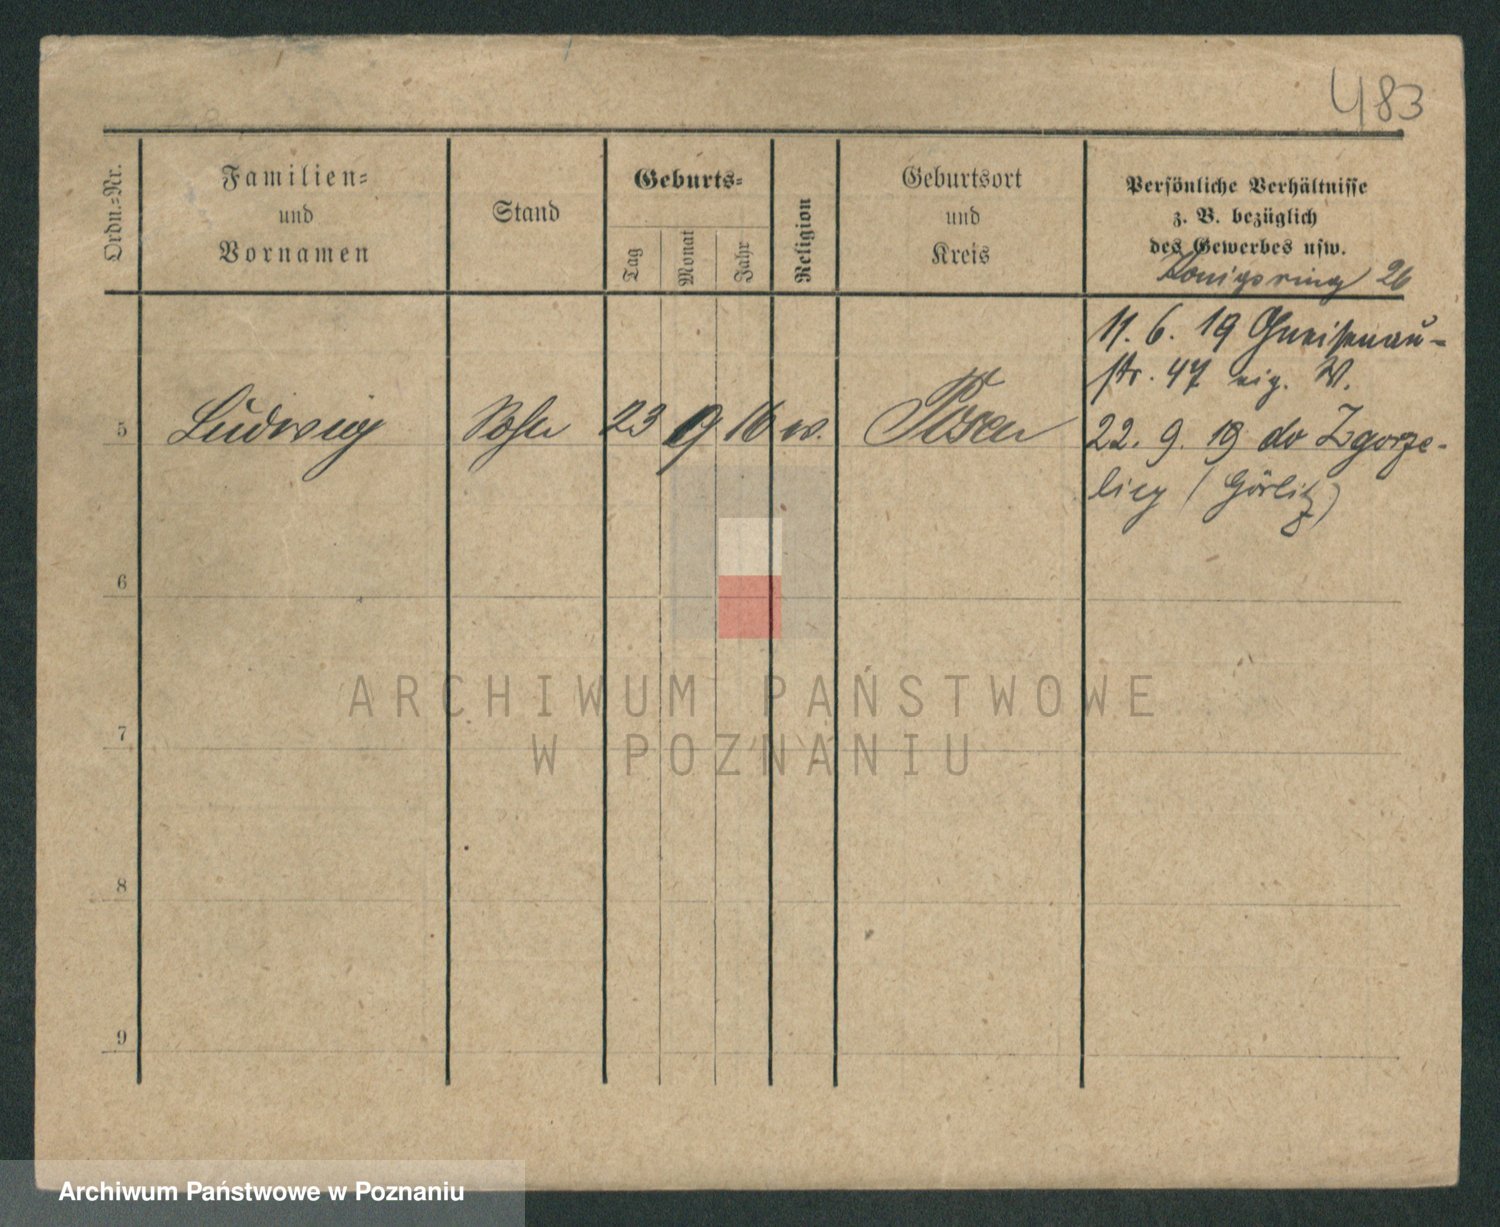 483
Ordn.-Nr.
Familien-
und
Vornamen
Stand
Geburts-
Tag
Monat
Jahr
Religion
Geburtsort
und
Kreis
Persönliche Verhältnisse
z. B. bezüglich
des Gewerbes usw.
Königsring 26
11. 6. 19 Gneisenau-
str. 47 eig. W.
5 Ludwig Sohn 23 9 16 ev. Posen 22. 9. 19 do Zgorze-
licy (Görlitz)
6
7
8
9
ARCHIWUM PAŃSTWOWE
W POZNANIU
Archiwum Państwowe w Poznaniu